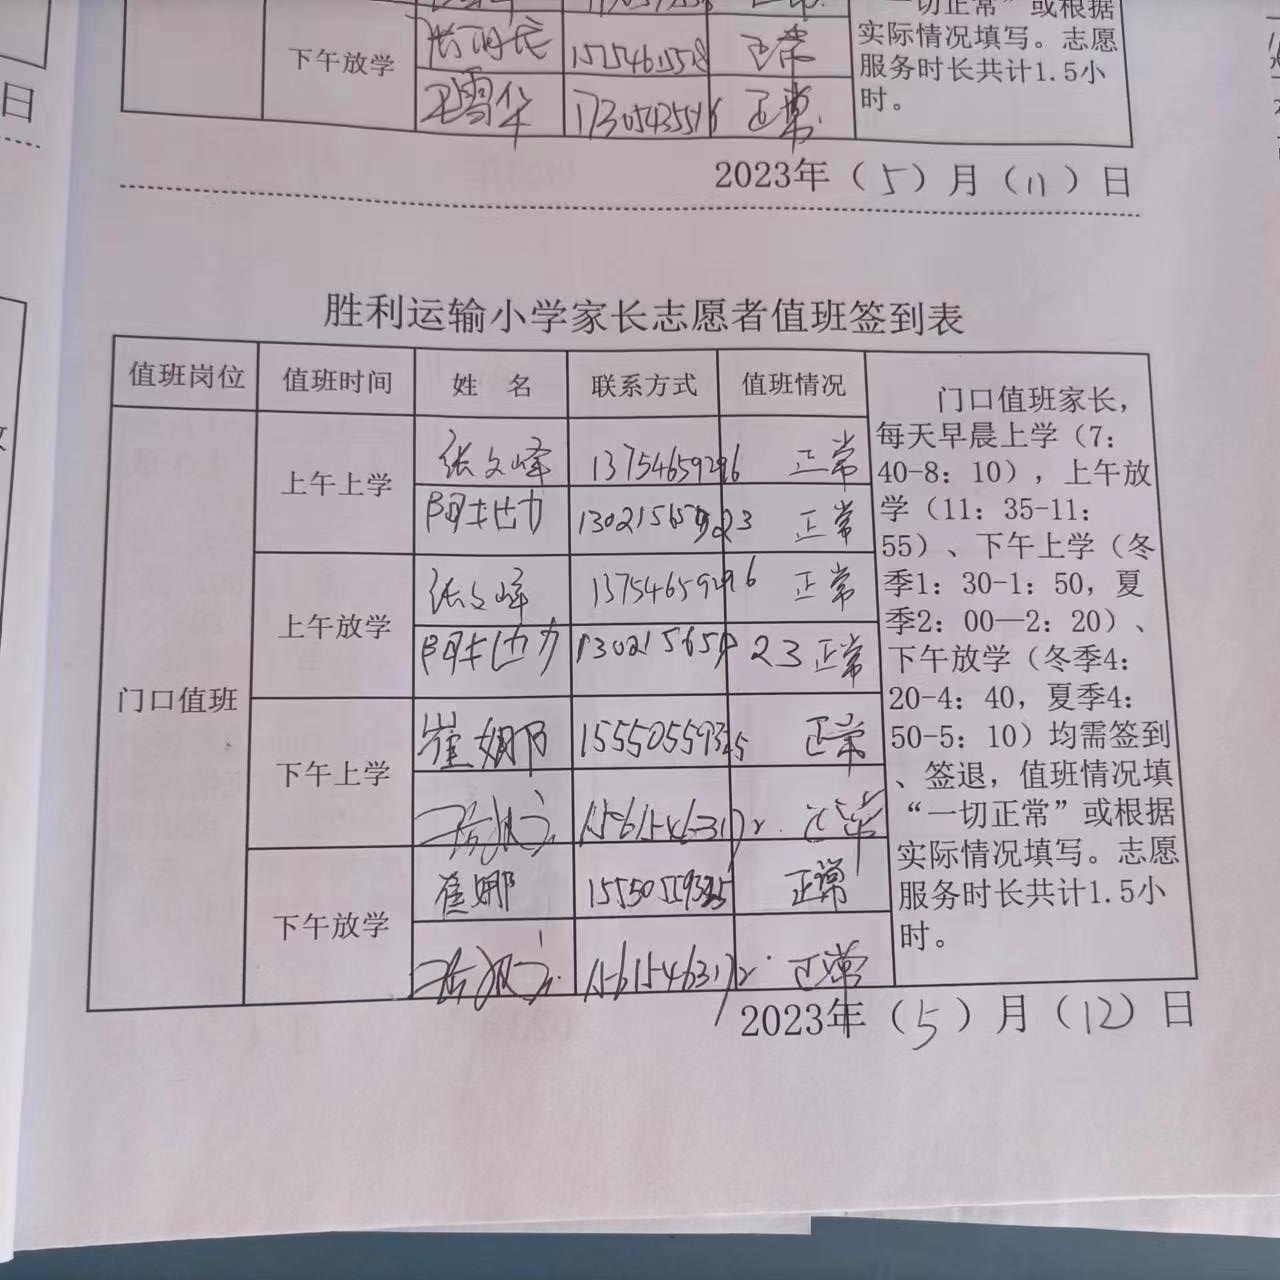 一切正常”或根据
下午放学
15754615518
正常
实际情况填写。志愿
服务时长共计1.5小
时。
王雪华
17305435516
正常
2023年（5）月（11）日
日
胜利运输小学家长志愿者值班签到表
值班岗位 值班时间 姓 名 联系方式 值班情况
门口值班
上午上学
张文峰 13754659296 正常
13021565923 正常
上午放学
张文峰 13754659296 正常
13021565923 正常
下午上学
崔娜 15550559325 正常
15615463172 正常
下午放学
崔娜 15550559325 正常
15615463172 正常
门口值班家长，
每天早晨上学（7：
40-8：10），上午放
学（11：35-11：
55）、下午上学（冬
季1：30-1：50，夏
季2：00—2：20）、
下午放学（冬季4：
20-4：40，夏季4：
50-5：10）均需签到
、签退，值班情况填
“一切正常”或根据
实际情况填写。志愿
服务时长共计1.5小
时。
2023年（5）月（12）日